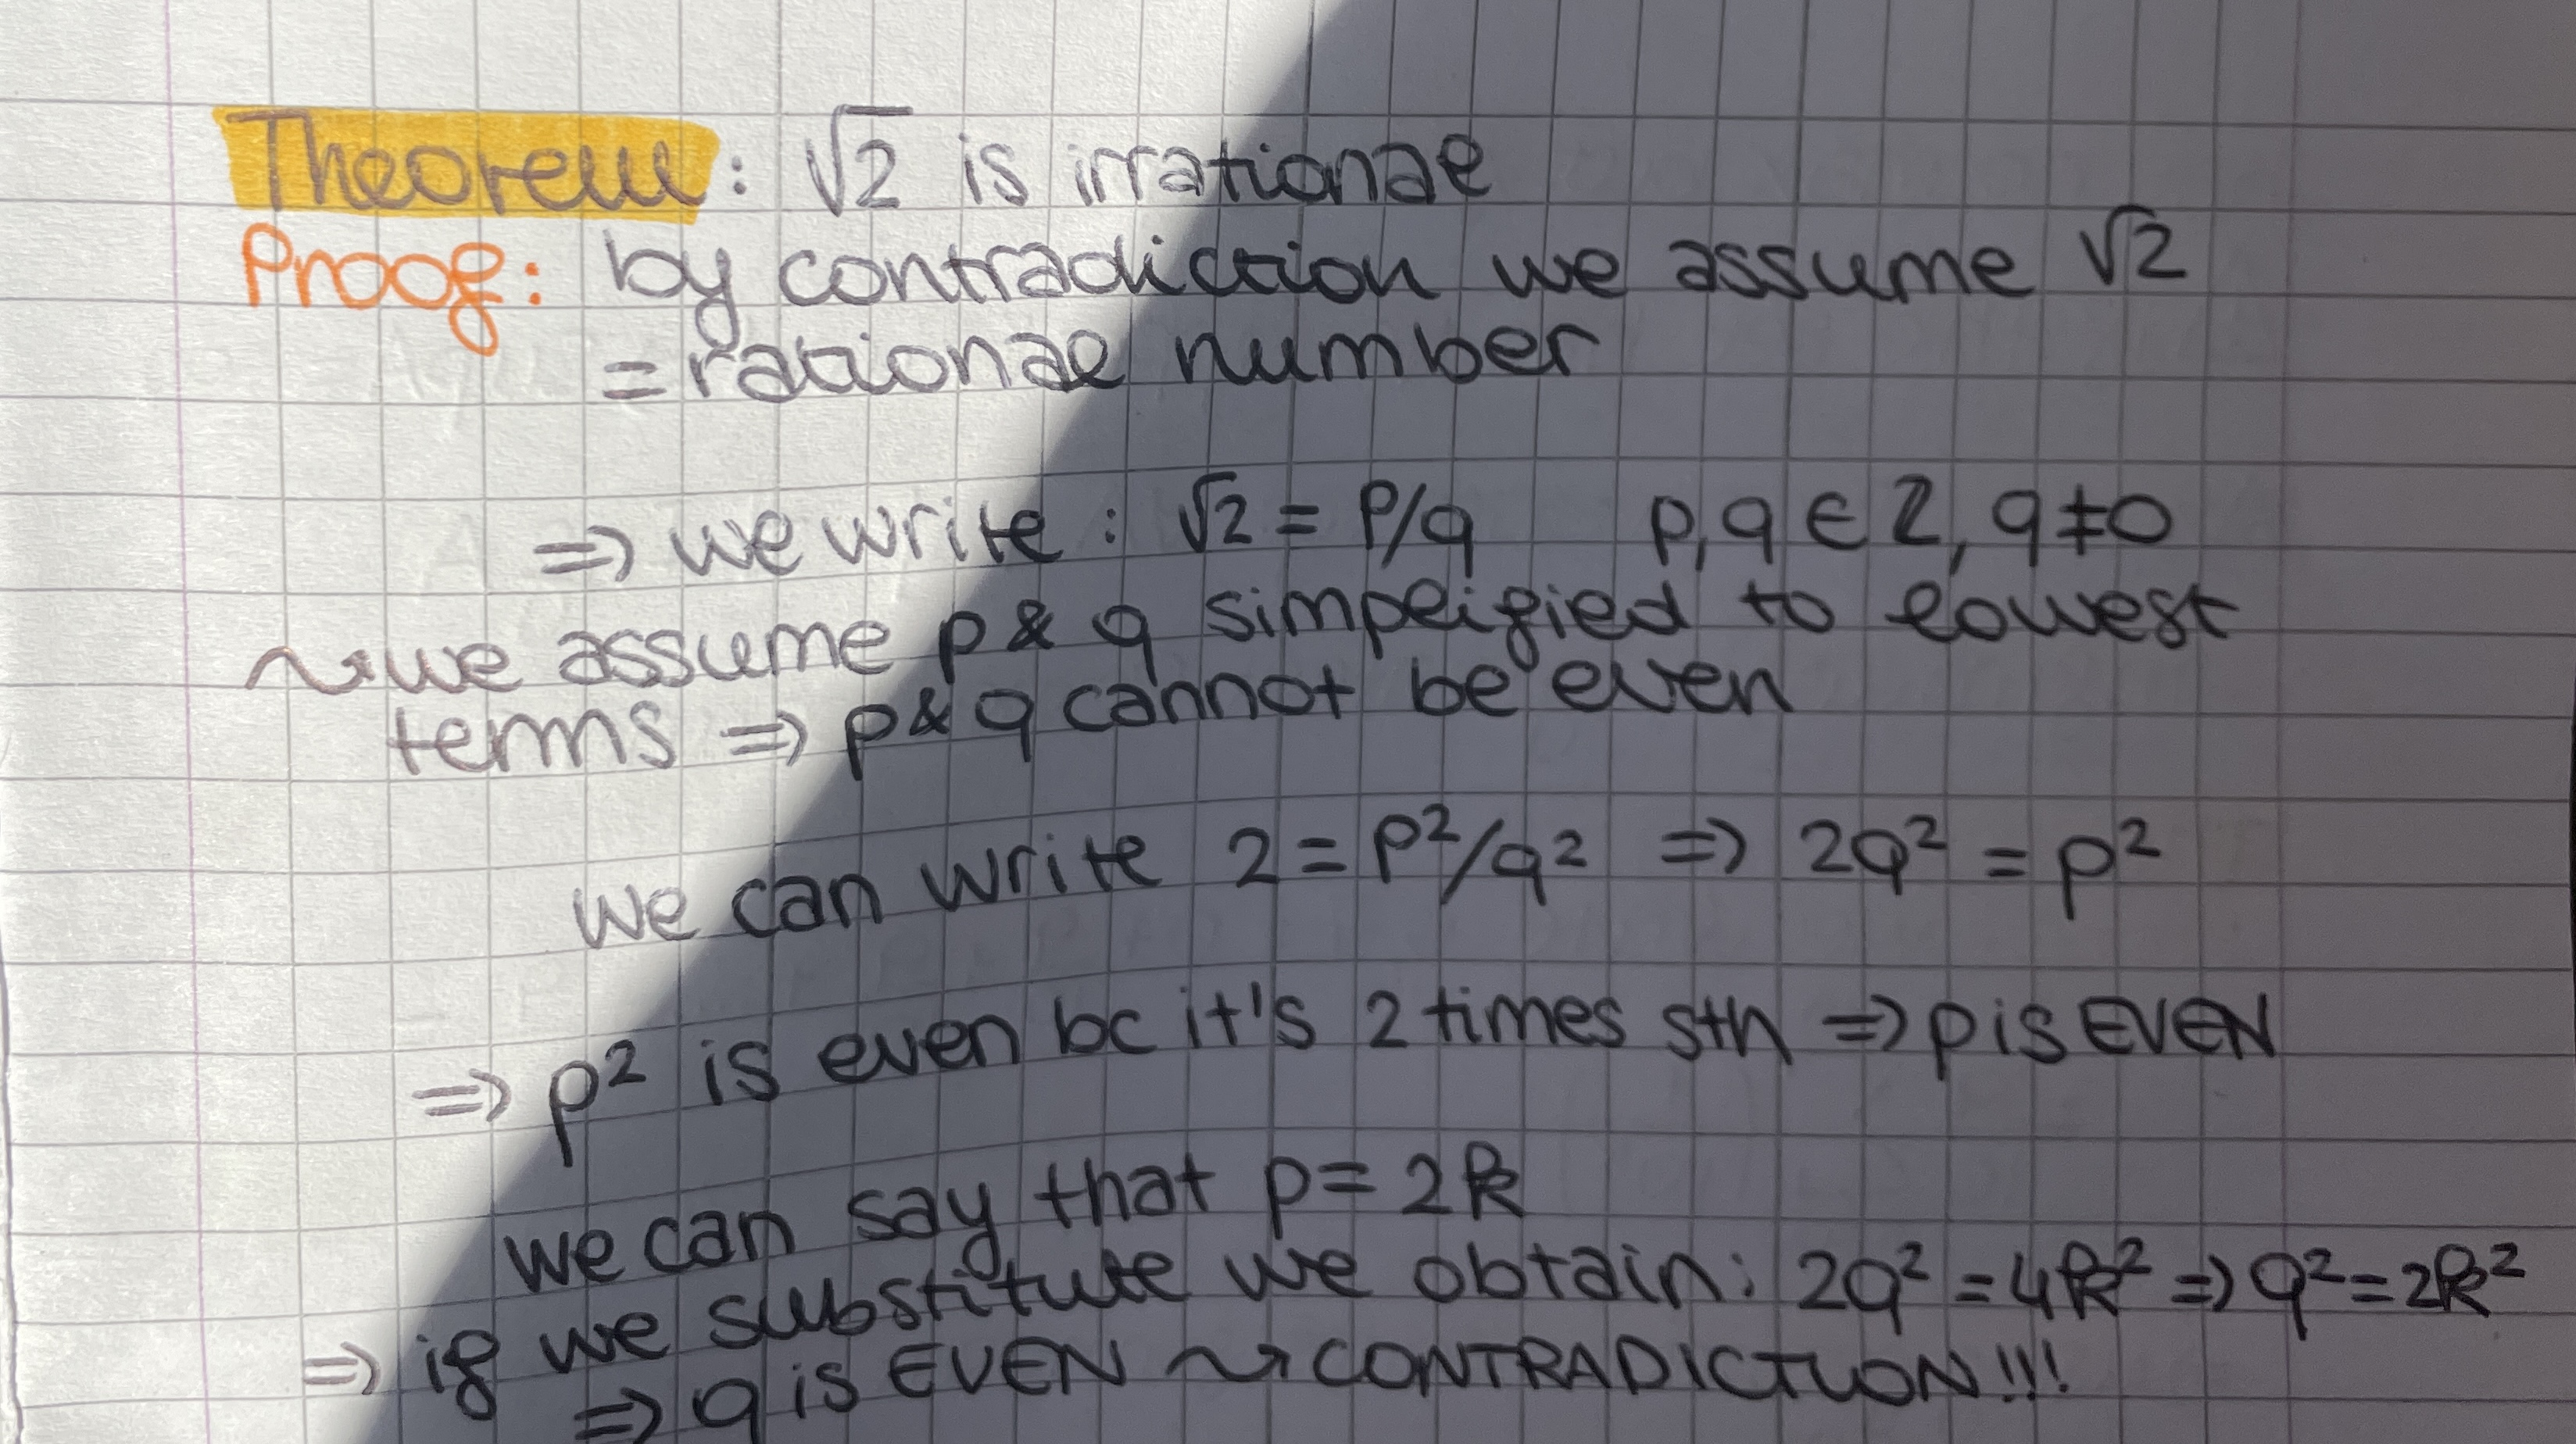 Theorem: √2 is irrational
Proof: by contradiction we assume √2
= rational number
⇒ we write: √2 = P/q p,q ∈ Z, q≠0
⤳ we assume p & q simplified to lowest
terms ⇒ p & q cannot be even
we can write 2 = p²/q² ⇒ 2q² = p²
⇒ p² is even bc it's 2 times sth ⇒ p is EVEN
we can say that p = 2k
⇒ if we substitute we obtain: 2q² = 4k² ⇒ q² = 2k²
⇒ q is EVEN ⤳ CONTRADICTION!!!